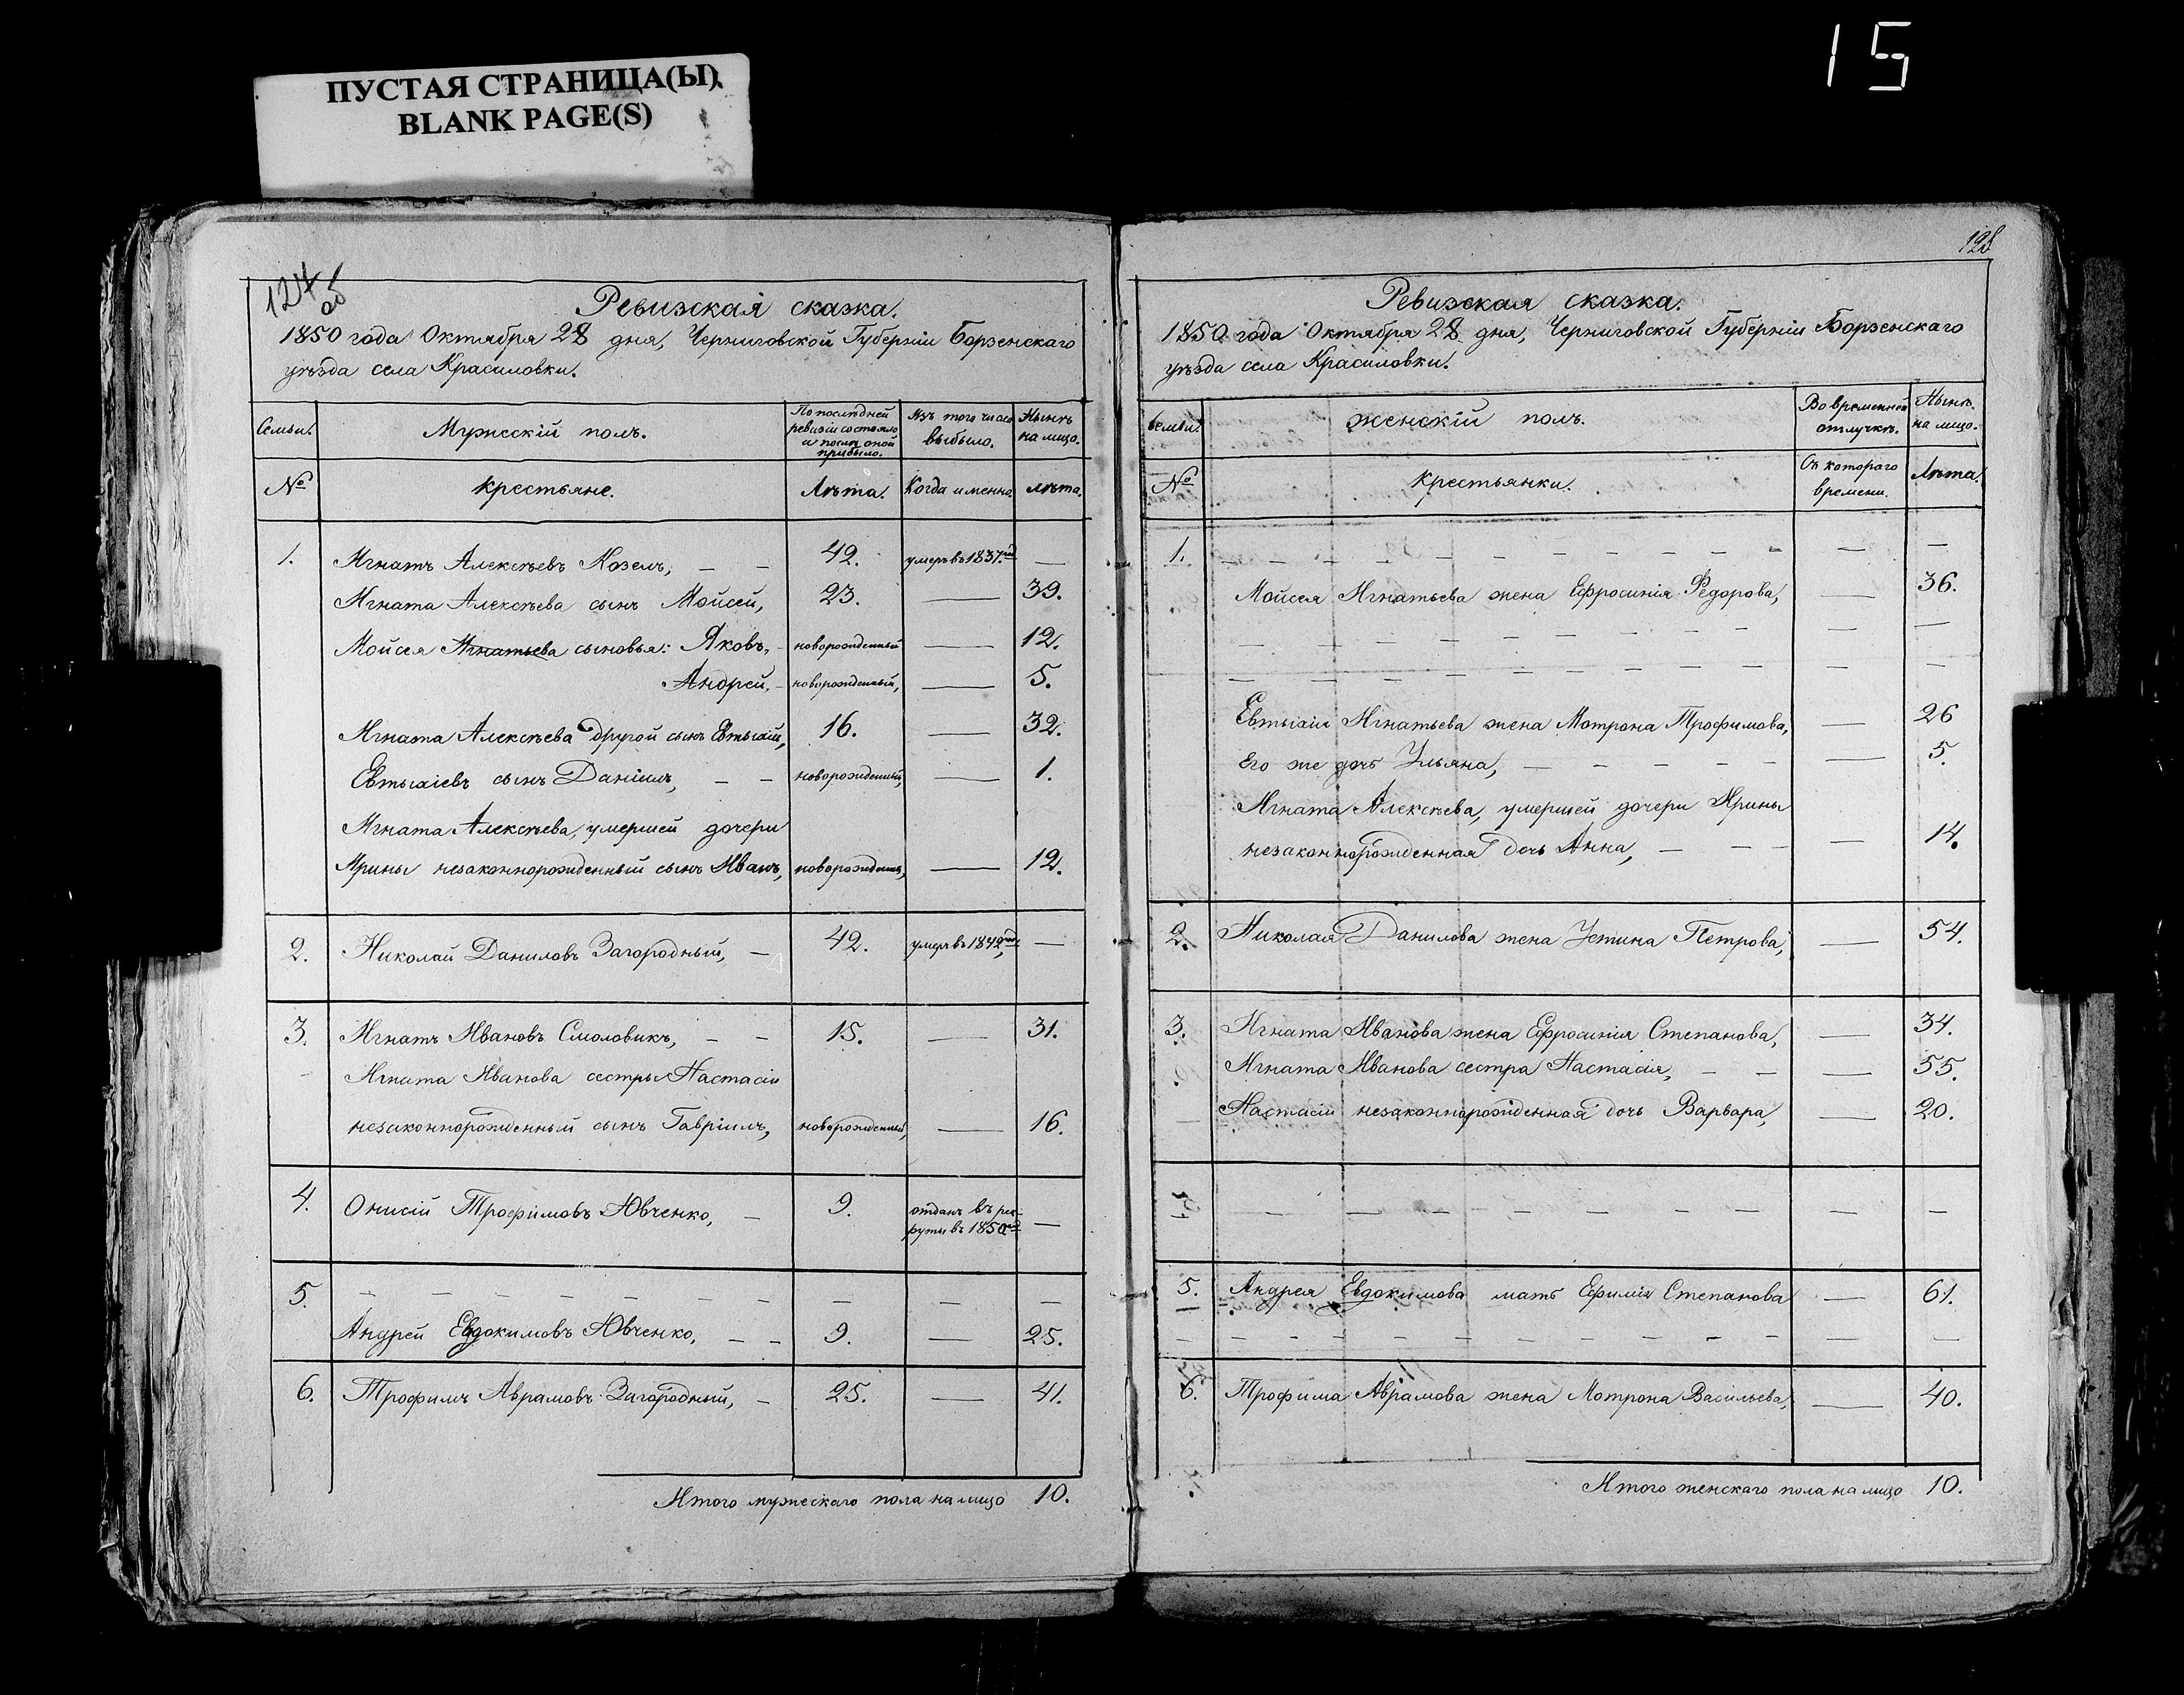 15
ПУСТАЯ СТРАНИЦА(Ы)
BLANK PAGE(S)
124
об
Ревизская сказка.
1850 года Октября 28 дня, Черниговской Губерніи Борзенскаго
уѣзда села Красиловки.
Семьи.
Мужескій полъ.
По послѣдней
ревизіи состояло
и послѣ оной
прибыло.
Изъ того числа
выбыло.
Нынѣ
на лицо.
№
крестьяне.
Лѣта.
Когда именно.
лѣта.
1. Игнатъ Алексѣевъ Козелъ, — — 42. умеръ въ 1837.мъ —
Игната Алексѣева сынъ Мойсей, 23. — 39.
Мойсея Игнатьева сыновья: Яковъ, - новорожденный — 12.
Андрей, - новорожденный, — 5.
Игната Алексѣева другой сынъ Евтыхій, 16. — 32.
Евтыхіевъ сынъ Даніилъ, — — новорожденный, — 1.
Игната Алексѣева, умершей дочери
Ирины незаконнорожденный сынъ Иванъ, новорожденн, — 12.
2. Николай Даниловъ Загородный, — 42. умеръ въ 1842мъ —
3. Игнатъ Ивановъ Смоловикъ, — — 15. — 31.
Игната Иванова сестры Настасіи
незаконнорожденный сынъ Гавріилъ, новорожденный, — 16.
4. Онисій Трофимовъ Ювченко, — 9. отданъ въ рек-
руты въ 1850мъ —
5. — — — — — — — — — —
Андрей Евдокимовъ Ювченко, — — 9. — 25.
6. Трофимъ Аврамовъ Загородный, — 25. — 41.
Итого мужескаго пола на лицо 10.
128
Ревизская сказка.
1850 года Октября 28 дня, Черниговской Губерніи Борзенскаго
уѣзда села Красиловки.
Семьи.
женскій полъ.
Во временной
отлучкѣ.
Нынѣ
на лицо.
№
крестьянки.
Съ котораго
времени.
Лѣта.
1. — — — — — — — — — — —
Мойсея Игнатьева жена Ефросинія Федорова, — 36.
— — — — — — — — — — —
— — — — — — — — — — —
Евтыхія Игнатьева жена Мотрона Трофимова, — 26
Его же дочь Ульяна, — — — — — — 5.
Игната Алексѣева, умершей дочери Ирины
незаконнорожденная дочь Анна, — — — — 14.
2. Николая Данилова жена Устина Петрова, — 54.
3. Игната Иванова жена Ефросинія Степанова, — 34.
Игната Иванова сестра Настасія, — — — 55.
Настасіи незаконнорожденная дочь Варвара, — 20.
4. — — — — — — — — — —
5. Андрея Евдокимова мать Ефимія Степанова — 61.
— — — — — — — — — — —
6. Трофима Аврамова жена Мотрона Васильева, — 40.
Итого женскаго пола на лицо 10.